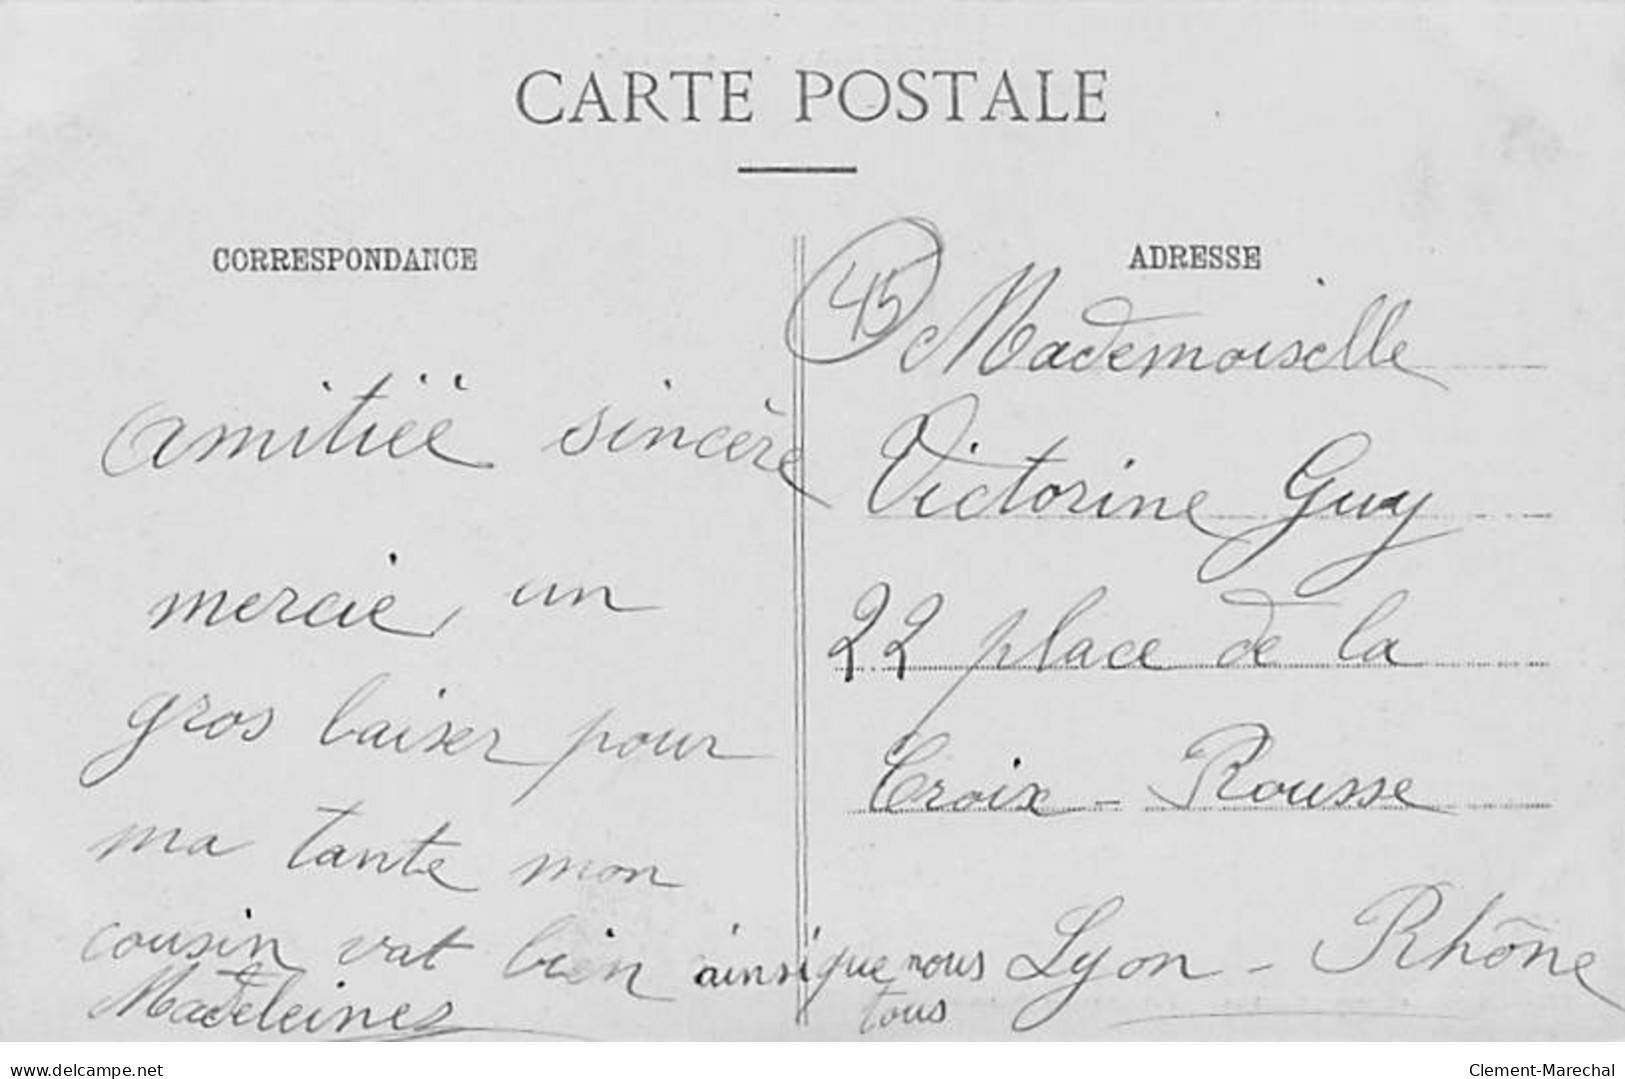 CARTE POSTALE
CORRESPONDANCE
amitiéé sincère
mercie un
gros baiser pour
ma tante mon
cousin vat bien ainsi que nous
tous
Madeleine
ADRESSE
45
Mademoiselle
Victorine Guy
22 place de la
Croix - Rousse
Lyon - Rhône
delcampe.net
Clement-Marechal